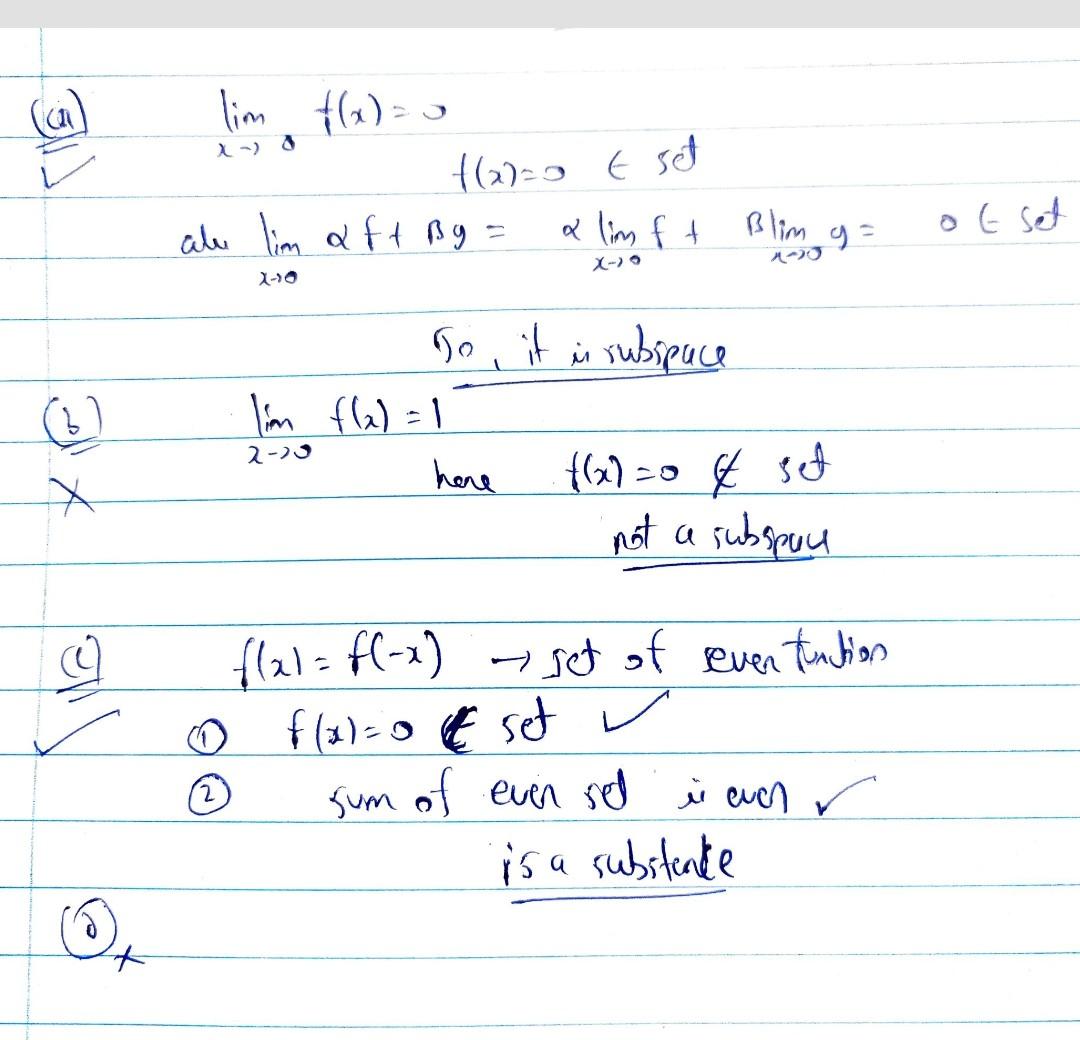 (a) lim x→0 f(x)=0
✓ f(x)=0 ∈ set
lim x→0 αf + βg = α lim x→0 f + β lim x→0 g = 0 ∈ set
So, it is subspace
(b) lim x→0 f(x) = 1
X here f(x)=0 ∉ set
not a subspace
(c) f(x) = f(-x) → set of even function
✓ ① f(x)=0 ∈ set ✓
② sum of even set is even ✓
is a
x